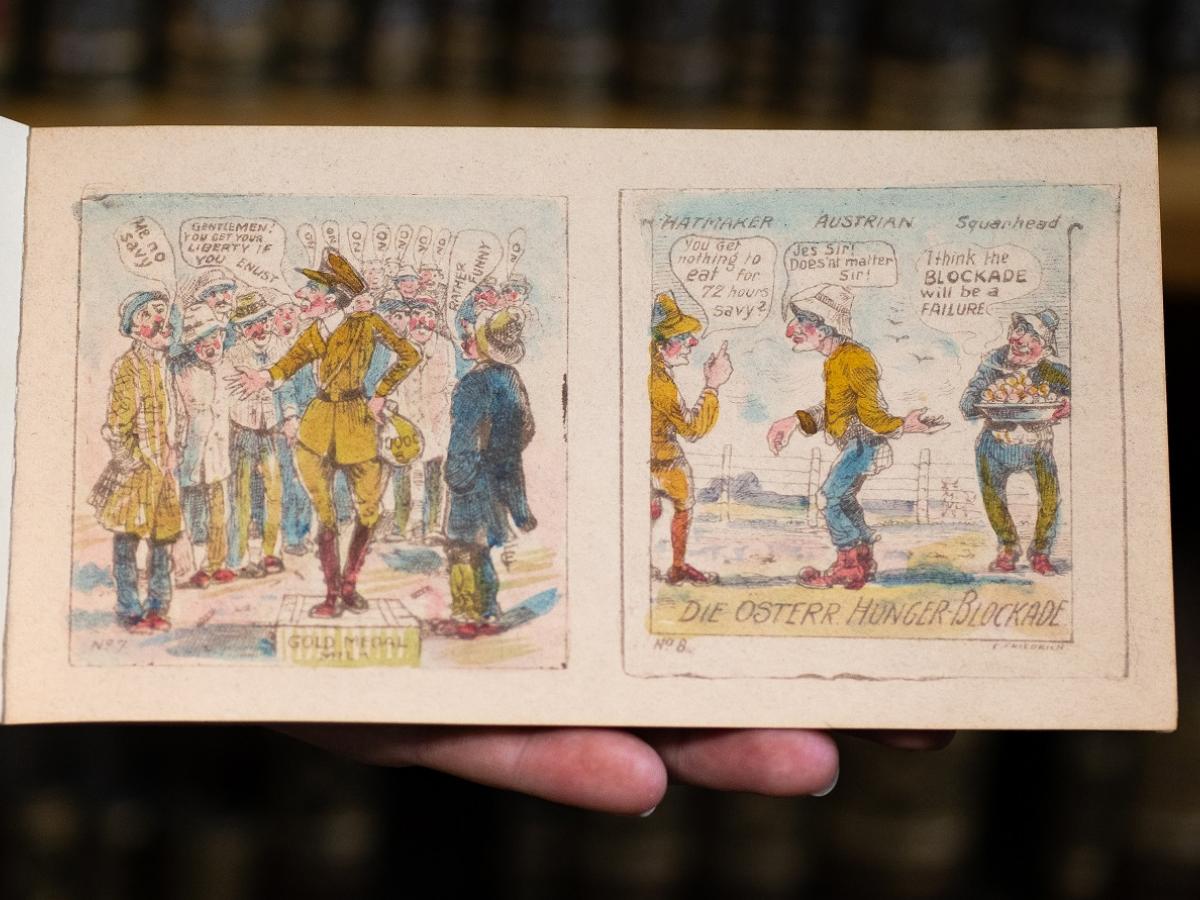 Me no
Savvy
GENTLEMEN!
YOU GET YOUR
LIBERTY IF
YOU ENLIST
NO
NO
NO
NO
NO
NO
NO
RATHER
FUNNY
NO
GOLD MEDAL
No 7.
HATMAKER AUSTRIAN Squarhead
You Get
nothing to
eat for
72 hours
savy?
Jes Sir!
Does'nt matter
Sir!
I think the
BLOCKADE
will be a
FAILURE
DIE OSTERR. HUNGER-BLOCKADE
No 8.
E. FRIEDRICH